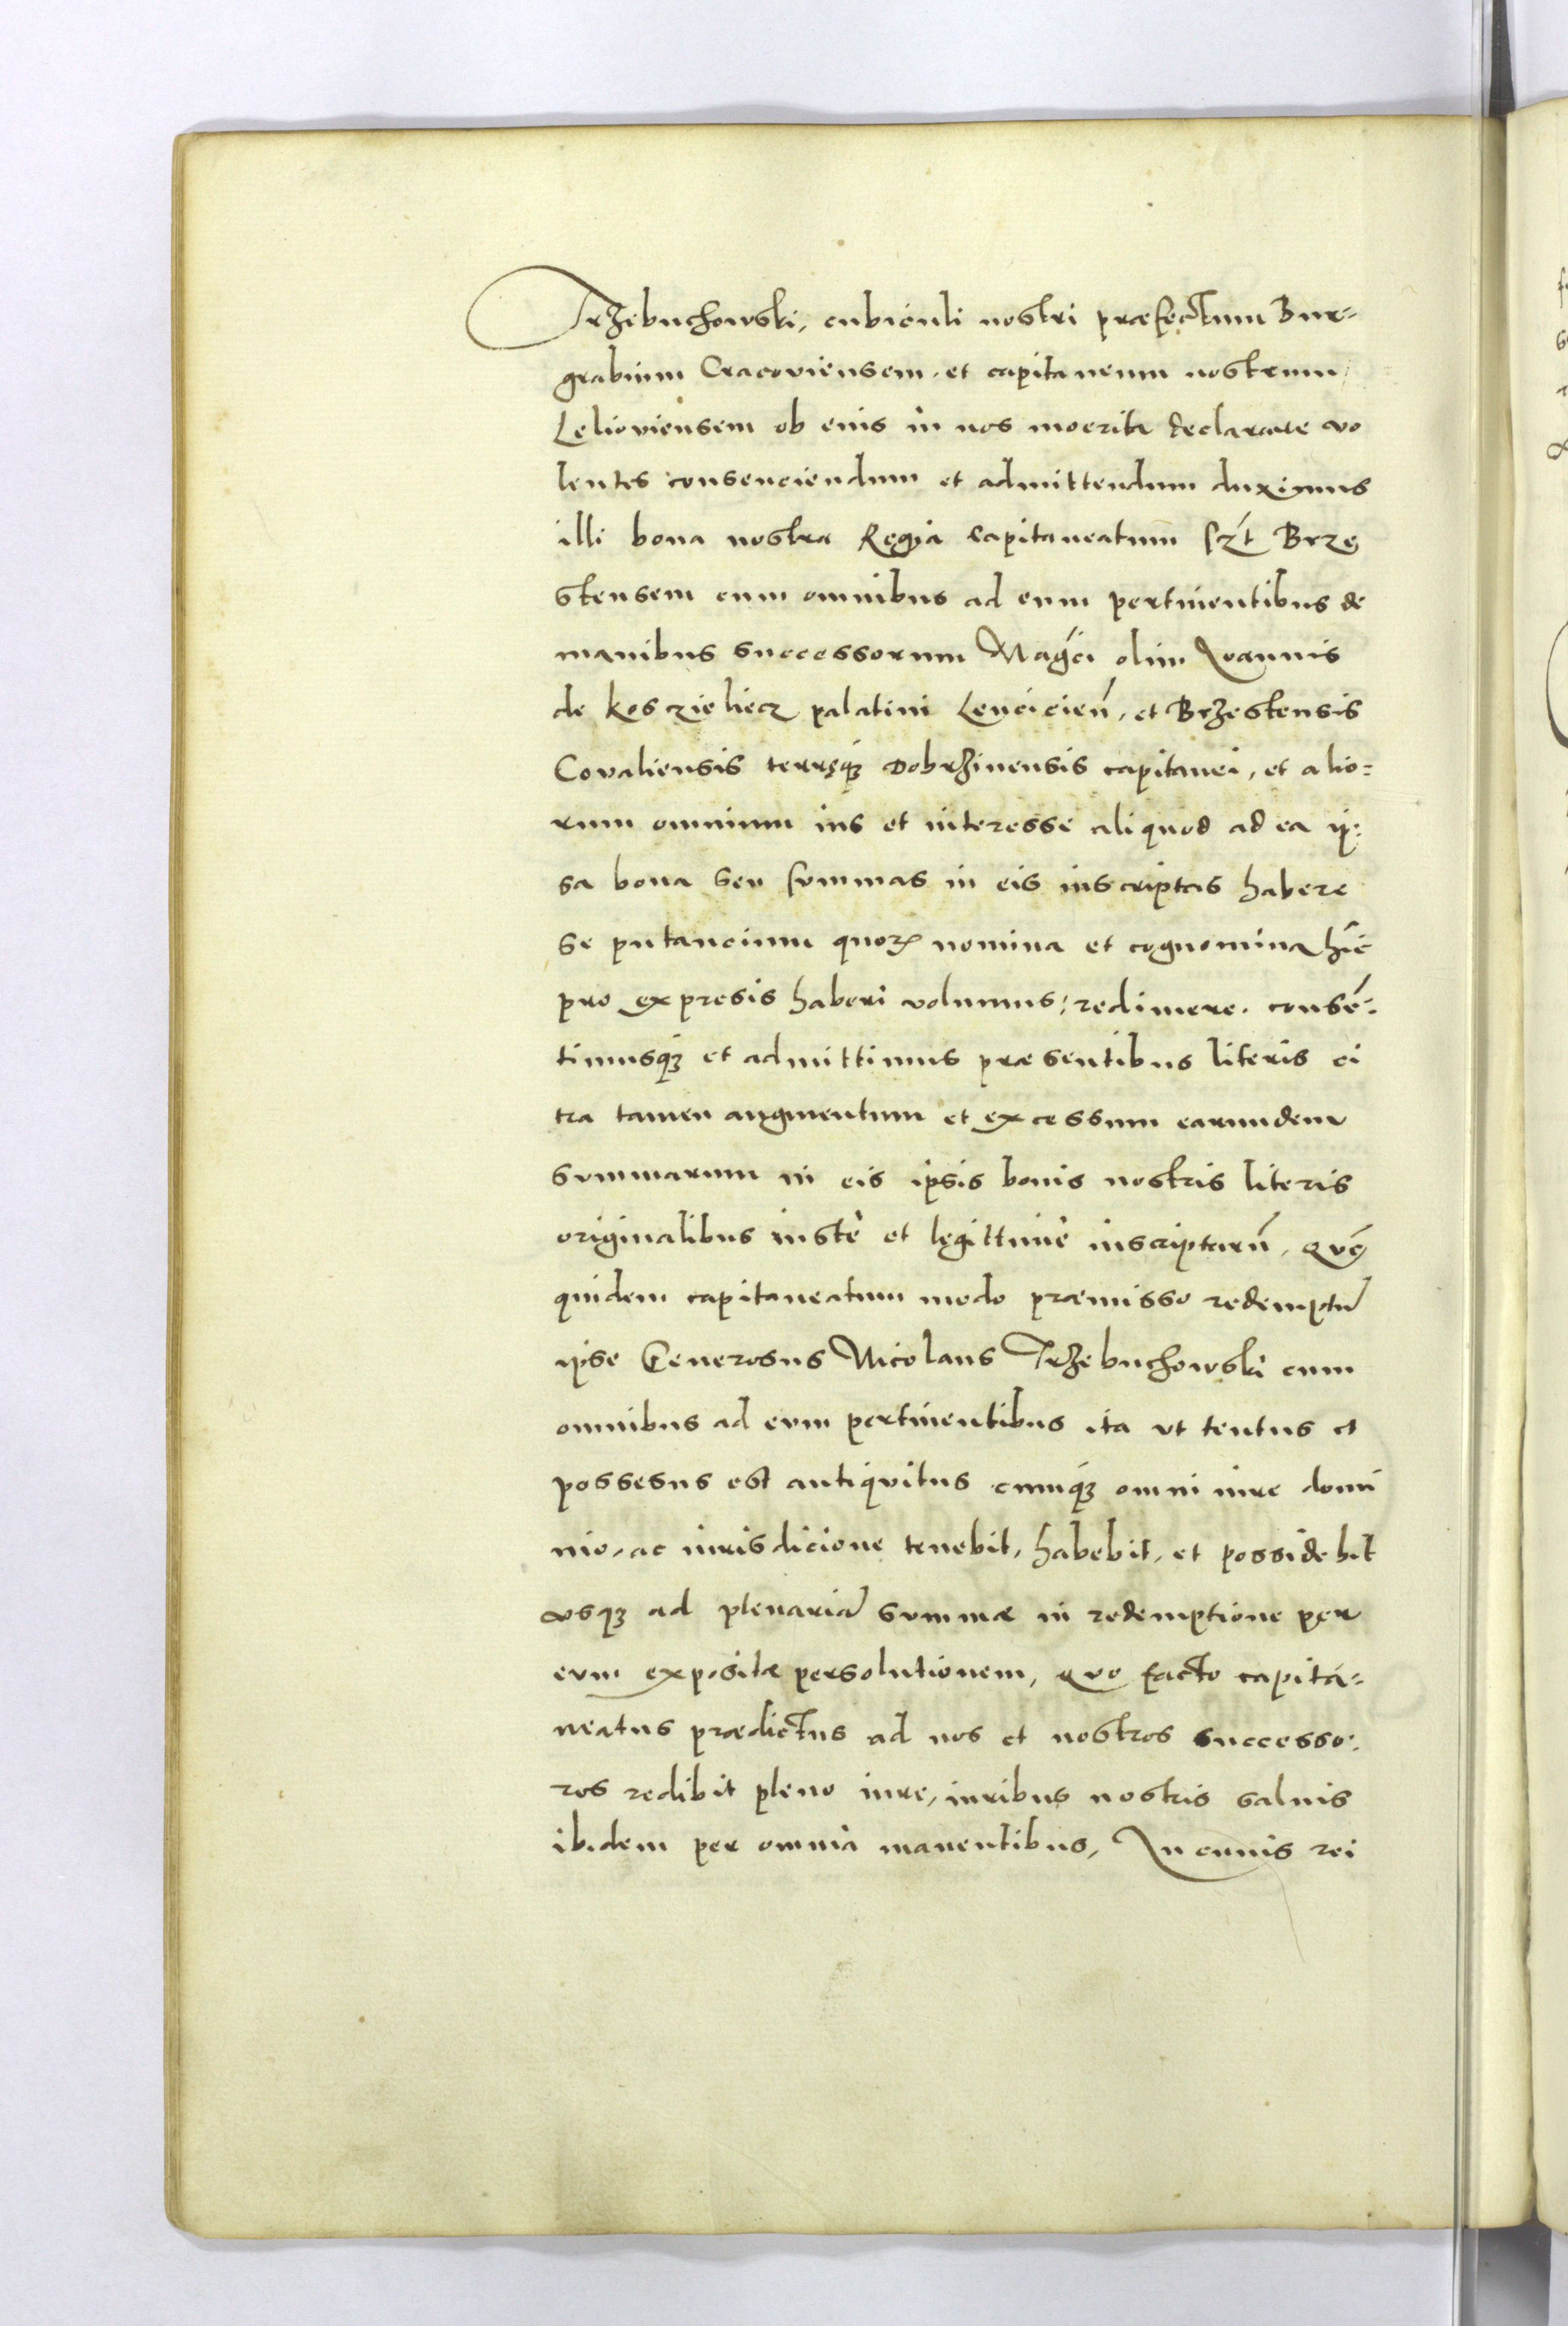 Trzebuchowski, cubiculi nostri præfectum Bur-
grabium Cracoviensem, et capitaneum nostrum
Lelioviensem ob eius in nos moerita declarare vo
lentes consenciendum et admittendum duximus
illi bona nostra Regia capitaneatum sz̃t Brze
stensem cum omnibus ad eum pertinentibus de
manibus successorum Mag̃ci olim Ioannis
de Kosczieliecz palatini Lencicień, et Brzestensis
Covaliensis terręq₃ Dobrzinensis capitanei, et alio-
rum omnium ius et interesse aliquod ad ea ip-
sa bona seu summas in eis inscriptas habere
se putancium quoꝝ nomina et cognomina hĩc
pro expresis haberi volumus, redimere. consẽ-
timusq₃ et admittimus præsentibus literis ci
tra tamen augmentum et excessum earundem
summarum in eis ipsis bonis nostris literis
originalibus iustè et legittimè inscriptarũ, Quẽ
quidem capitaneatum modo præmisso redemptũ
ipse Generosus Nicolaus Trzebuchowski cum
omnibus ad eum pertinentibus ita ut tentus et
possesus est antiquitus cumq₃ omni iure domi
nio, ac iurisdicione tenebit, habebit, et possidebit
usq₃ ad plenariã summæ in redemptione per
eum expositæ persolutionem, quo facto capita-
neatus prædictus ad nos et nostros successo-
ros redibit pleno iure, iuribus nostris salvis
ibidem per omnia manentibus, In cuius rei